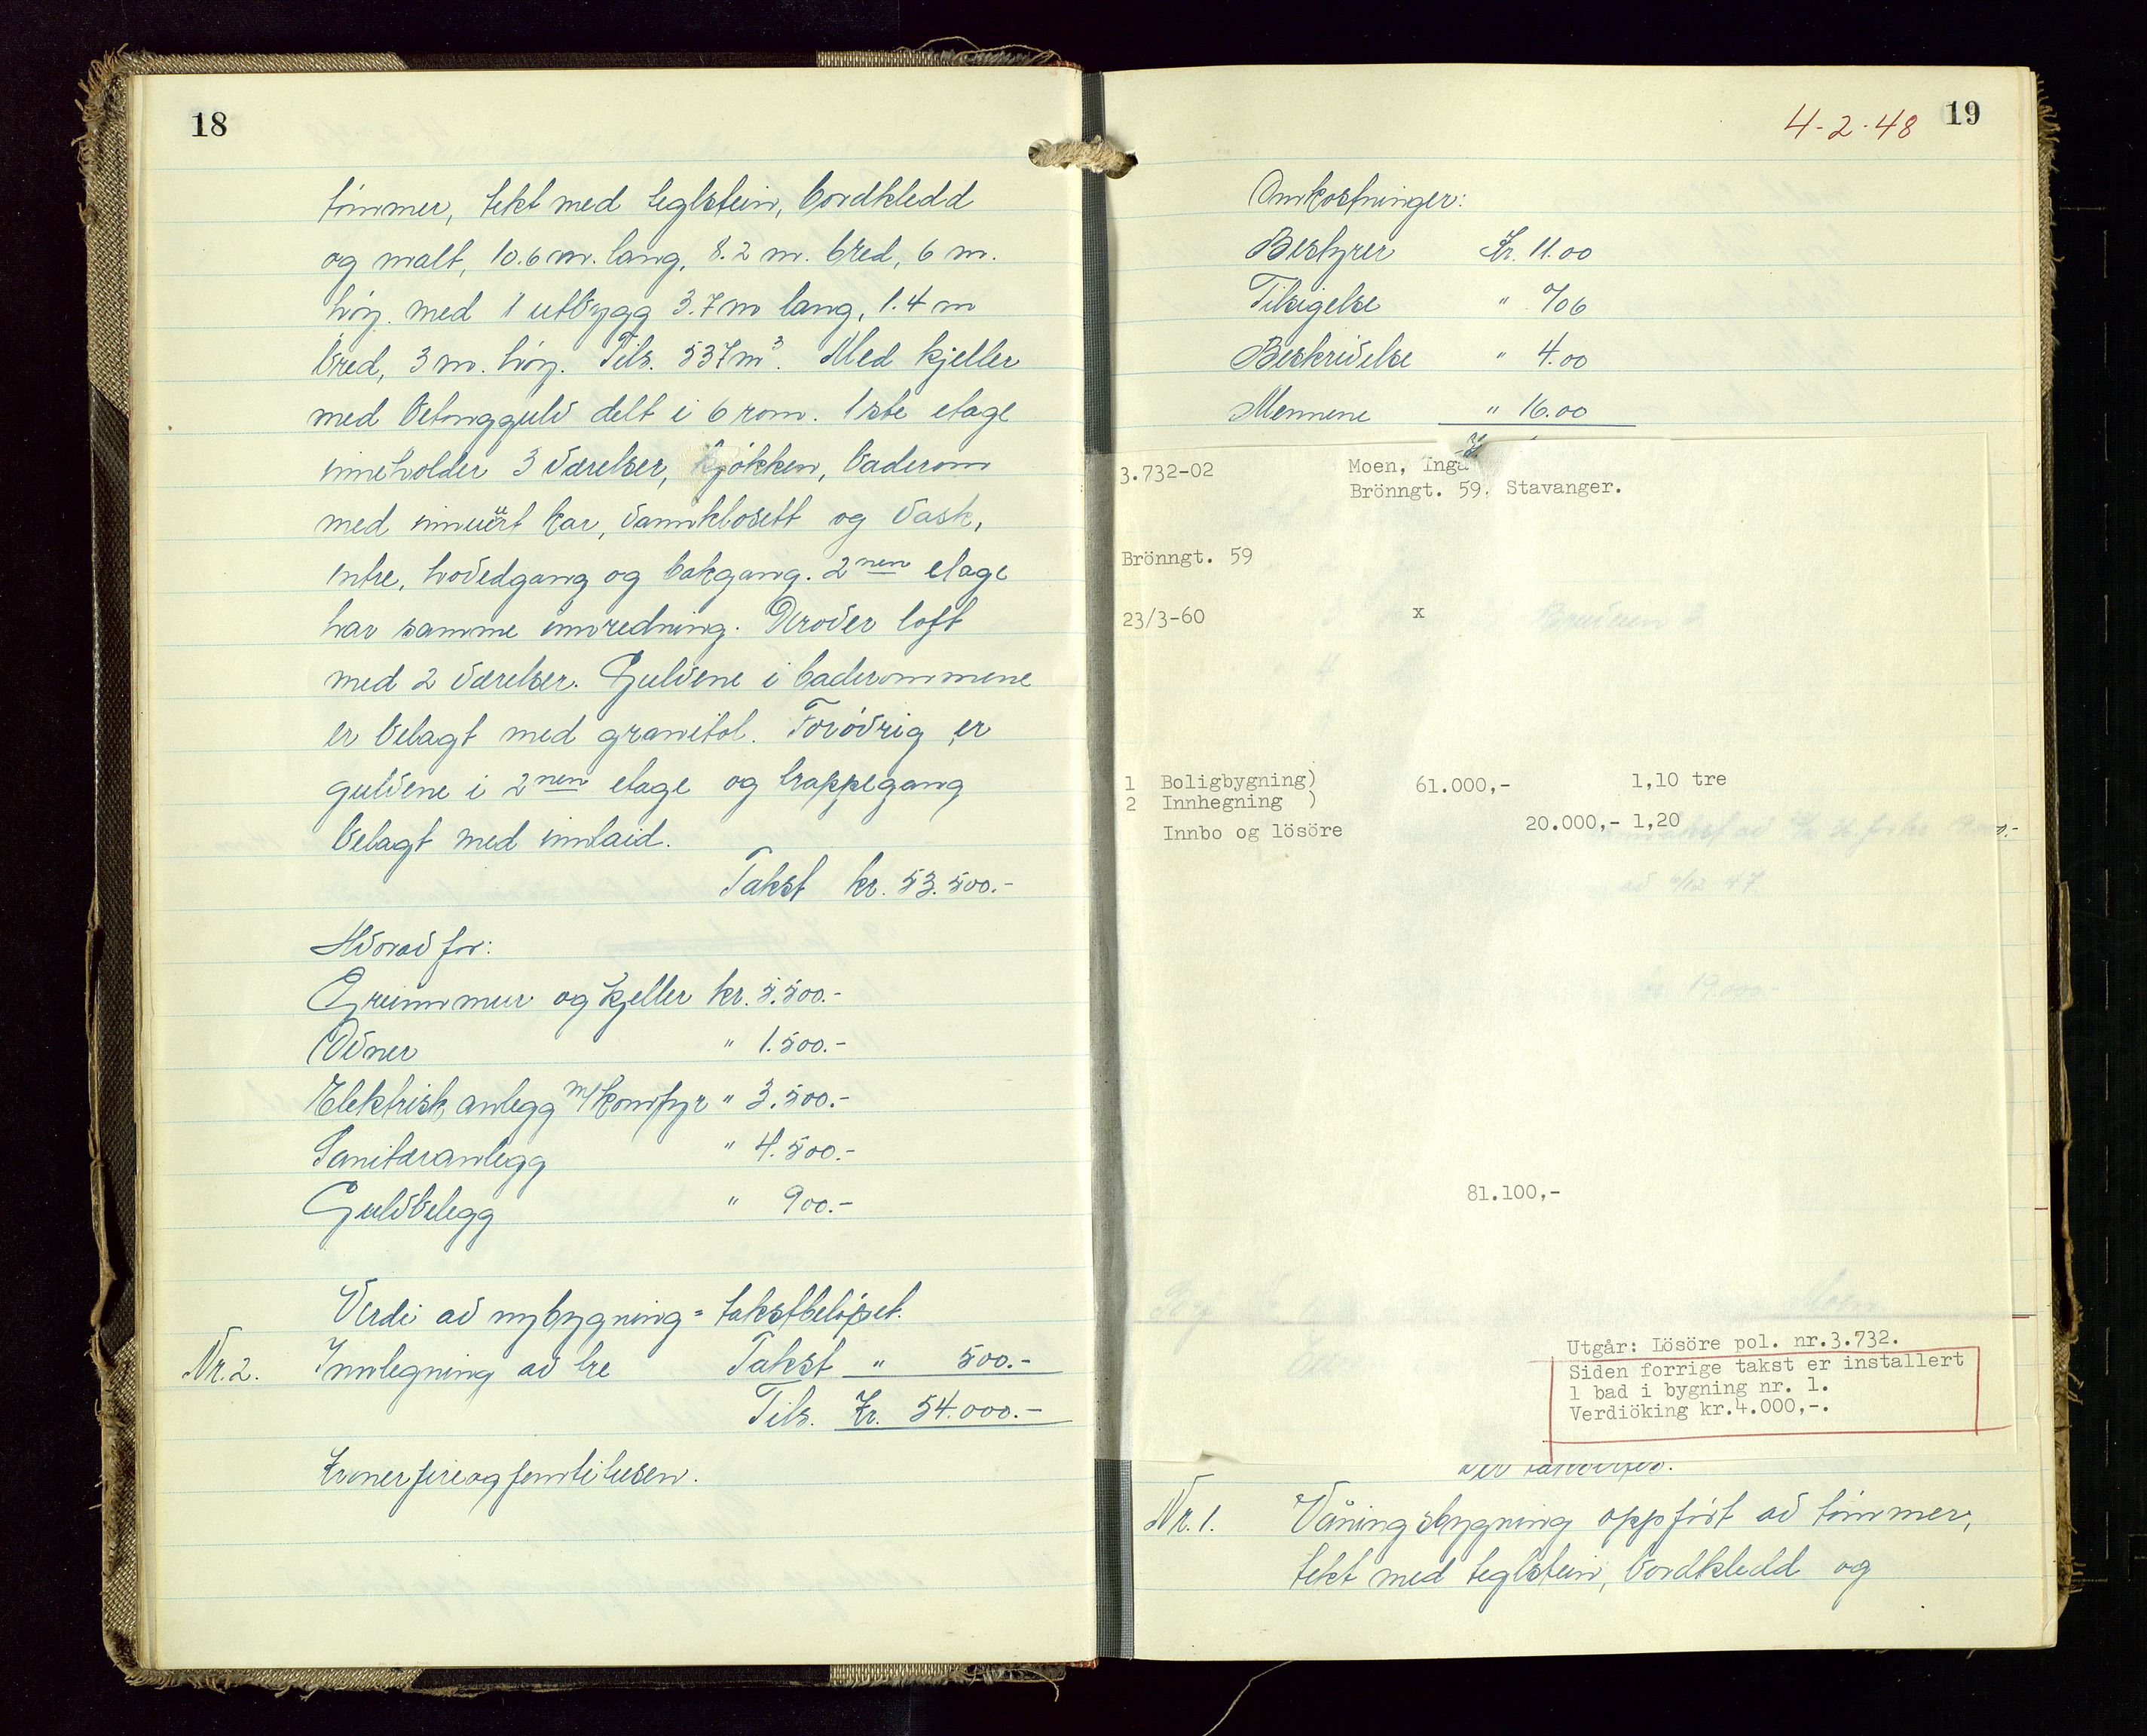 18
tömmer, tekt med teglstein, bordkledd
og malt, 10.6 m. lang, 8.2 m. bred, 6 m.
höy. med 1 utbygg 3.7 m lang, 1.4 m
bred, 3 m. höy. Tils. 537 m³. Med kjeller
med betonggulv delt i 6 rom. 1ste etage
inneholder 3 værelser, kjökken, baderom
med innmurt kar, vannklosett og vask,
entre, hovedgang og bakgang. 2nen etage
har samme innredning. Derover loft
med 2 værelser. Gulvene i baderommene
er belagt med granitol. Forövrig er
gulvene i 2nen etage og trappegang
belagt med innlaid.
Takst kr. 53.500.-
Hvorav for:
Grunnmur og kjeller kr. 5.500.-
Ovner " 1.500.-
Elektrisk anlegg m/komfyr " 3.500.-
Sanitæranlegg " 4.500.-
Gulvbelegg " 900.-
Verdi av nybygning = takstbelöpet.
Nr. 2. Innhegning av tre Takst " 500.-
Tils. Kr. 54.000.-
Kroner fireogfemtitusen.
4-2-48 19
Omkostninger:
Bestyrer Kr. 11.00
Tilsigelse "
Beskrivelse " 4.00
Mennene " 16.00
3.732-02 Moen, Inga
Brönngt. 59. Stavanger.
Brönngt. 59
23/3-60 x
1 Boligbygning) 61.000,- 1,10 tre
2 Innhegning )
Innbo og lösöre 20.000,- 1,20
81.100,-
Utgår: Lösöre pol. nr.3.732.
Siden forrige takst er installert
1 bad i bygning nr. 1.
Verdiöking kr.4.000,-.
Nr. 1. Våningsbygning oppfört av tömmer,
tekt med teglstein, bordkledd og